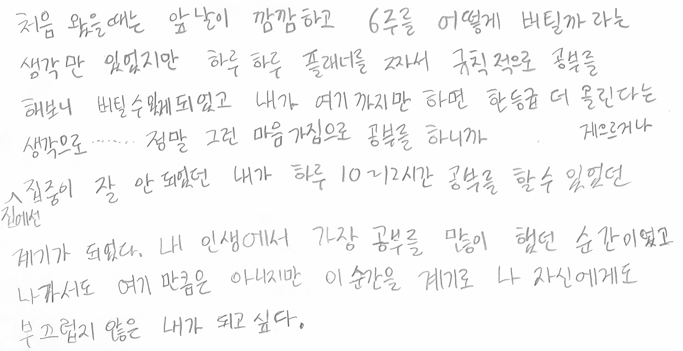 처음 왔을때는 앞날이 깜깜하고 6주를 어떻게 버틸까 라는
생각만 있었지만 하루 하루 플래너를 짜서 규칙적으로 공부를
해보니 버틸수있게되었고 내가 여기까지만 하면 한등급 더 올린다는
생각으로....... 정말 그런 마음가짐으로 공부를 하니까 게으르거나
집중이 잘 안 되었던 내가 하루 10~12시간 공부를 할수 있었던
진에선
계기가 되었다. 내 인생에서 가장 공부를 많이 했던 순간이였고
나가서도 여기 만큼은 아니지만 이 순간을 계기로 나 자신에게도
부끄럽지 않은 내가 되고 싶다.